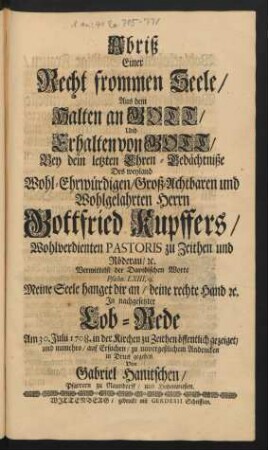 Abriß
Einer
Recht frommen Seele/
Aus dem
Halten an GOTT/
Und
Erhalten von GOTT/
Bey dem letzten Ehren-Gedächtnüße
Des weyland
Wohl-Ehrwürdigen/Groß-Achtbaren und
Wohlgelahrten Herrn
Gottfried Kupffers/
Wohlverdienten PASTORIS zu Zeithen und
Röderau/ ꝛc.
Vermittelst der Davidischen Worte
Psalm. LXIII, 9.
Meine Seele hanget dir an/ deine rechte Hand ꝛc.
In nachgesetzter
Lob-Rede
Am 30. Julii 1708. in der Kirchen zu Zeithen öffentlich gezeiget/
und nunmehro/ auf Ersuchen/ zu unvergeßlichem Andencken
in Druck gegeben
Von
Gabriel Hanitschen/
Pfarrern zu
WITTENBERG/ gedruckt mit GERDESII Schrifften.